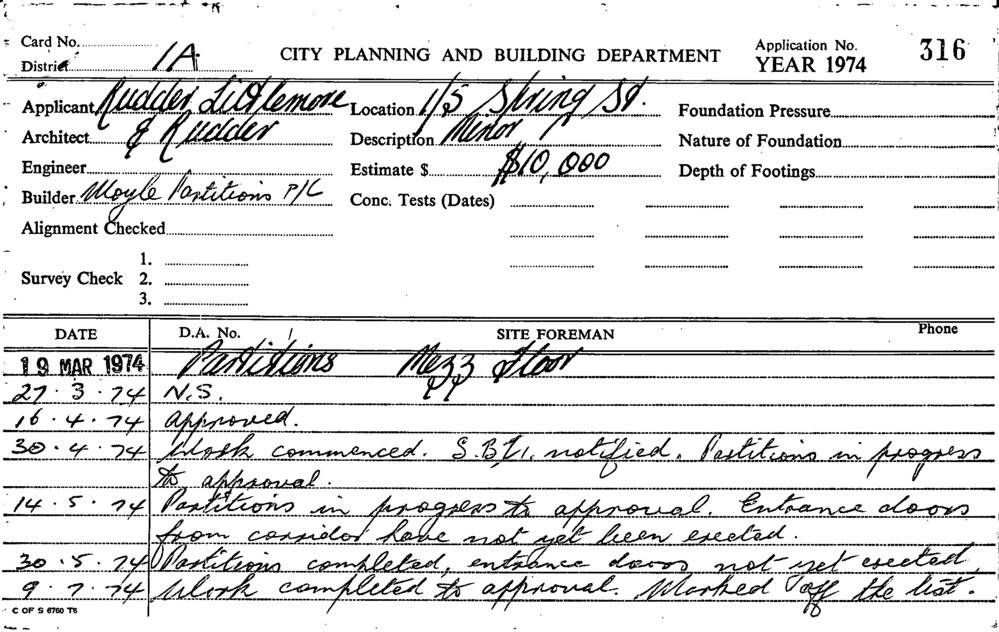 Card No.
District 1A
CITY PLANNING AND BUILDING DEPARTMENT
Application No. 316
YEAR 1974
Applicant Rudder Littlemore
Architect & Rudder
Engineer
Builder Moyle Partitions P/L
Alignment Checked
Survey Check 1.
2.
3.
Location 1/5 Spring St.
Description Minor
Estimate $ $10,000
Conc. Tests (Dates)
Foundation Pressure
Nature of Foundation
Depth of Footings
DATE D.A. No. SITE FOREMAN Phone
19 MAR 1974 Partitions Mezz Floor
27.3.74 N.S.
16.4.74 approved.
30.4.74 Work commenced. notified. Partitions in progress
to approval.
14.5.74 Partitions in progress to approval. Entrance doors
from corridor have not yet been erected.
30.5.74 Partitions completed, entrance doors not yet erected.
9.7.74 Work completed to approval. Marked off the list.
C OF S 6760 T6